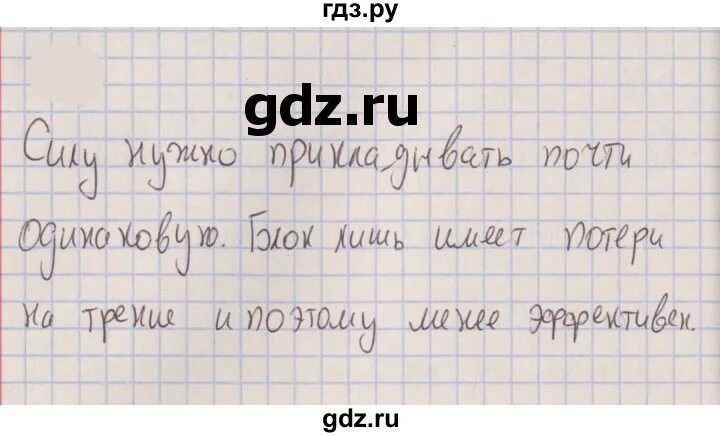 гдз.ру
gdz.ru
Силу нужно прикладывать почти
одинаковую. Блок лишь имеет потери
на трение и поэтому менее эффективен.
gdz.ru